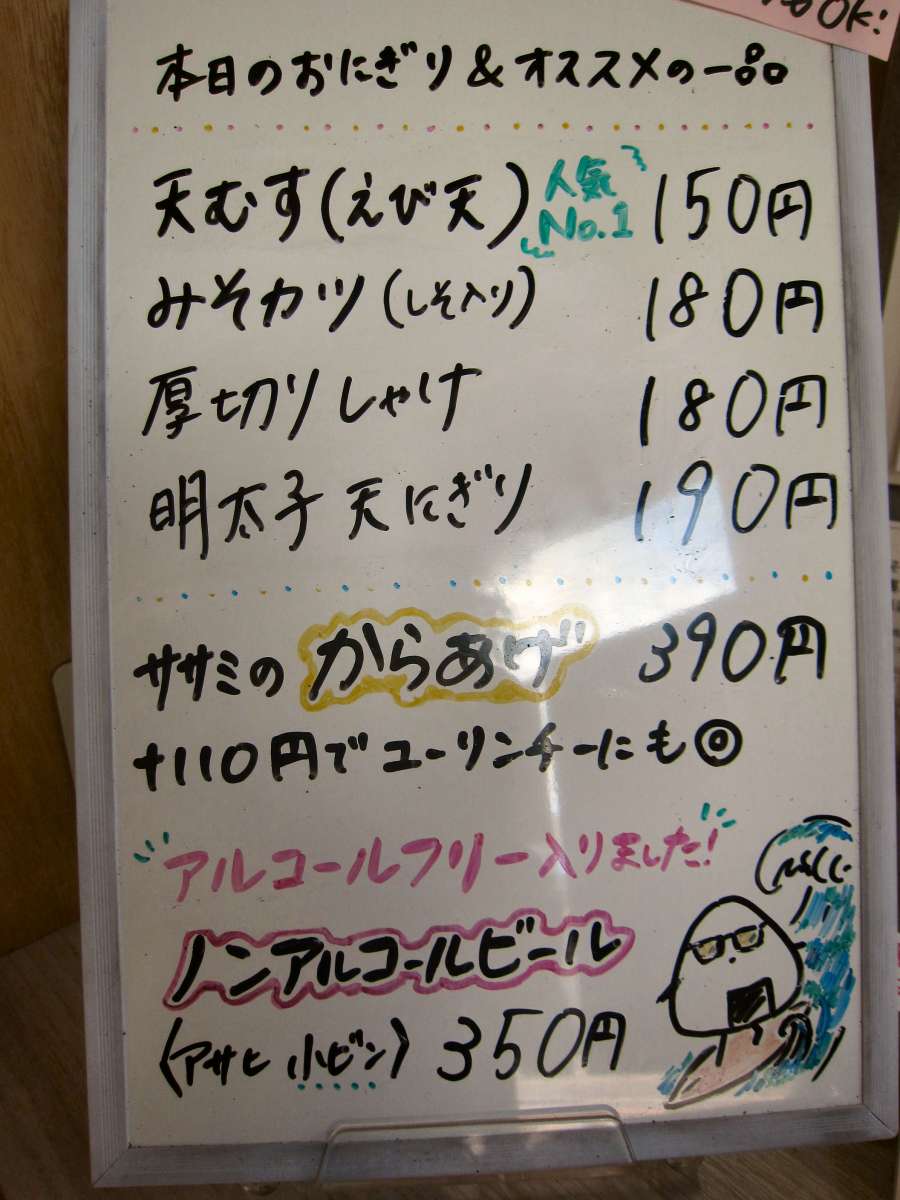 OK!
本日のおにぎり&オススメの一品
天むす(えび天) 人気No.1 150円
みそカツ(しそ入り) 180円
厚切りしゃけ 180円
明太子 天にぎり 190円
ササミの からあげ 390円
+110円でユーリンチーにも◎
アルコールフリー入りました!
ノンアルコールビール
〈アサヒ 小ビン〉 350円